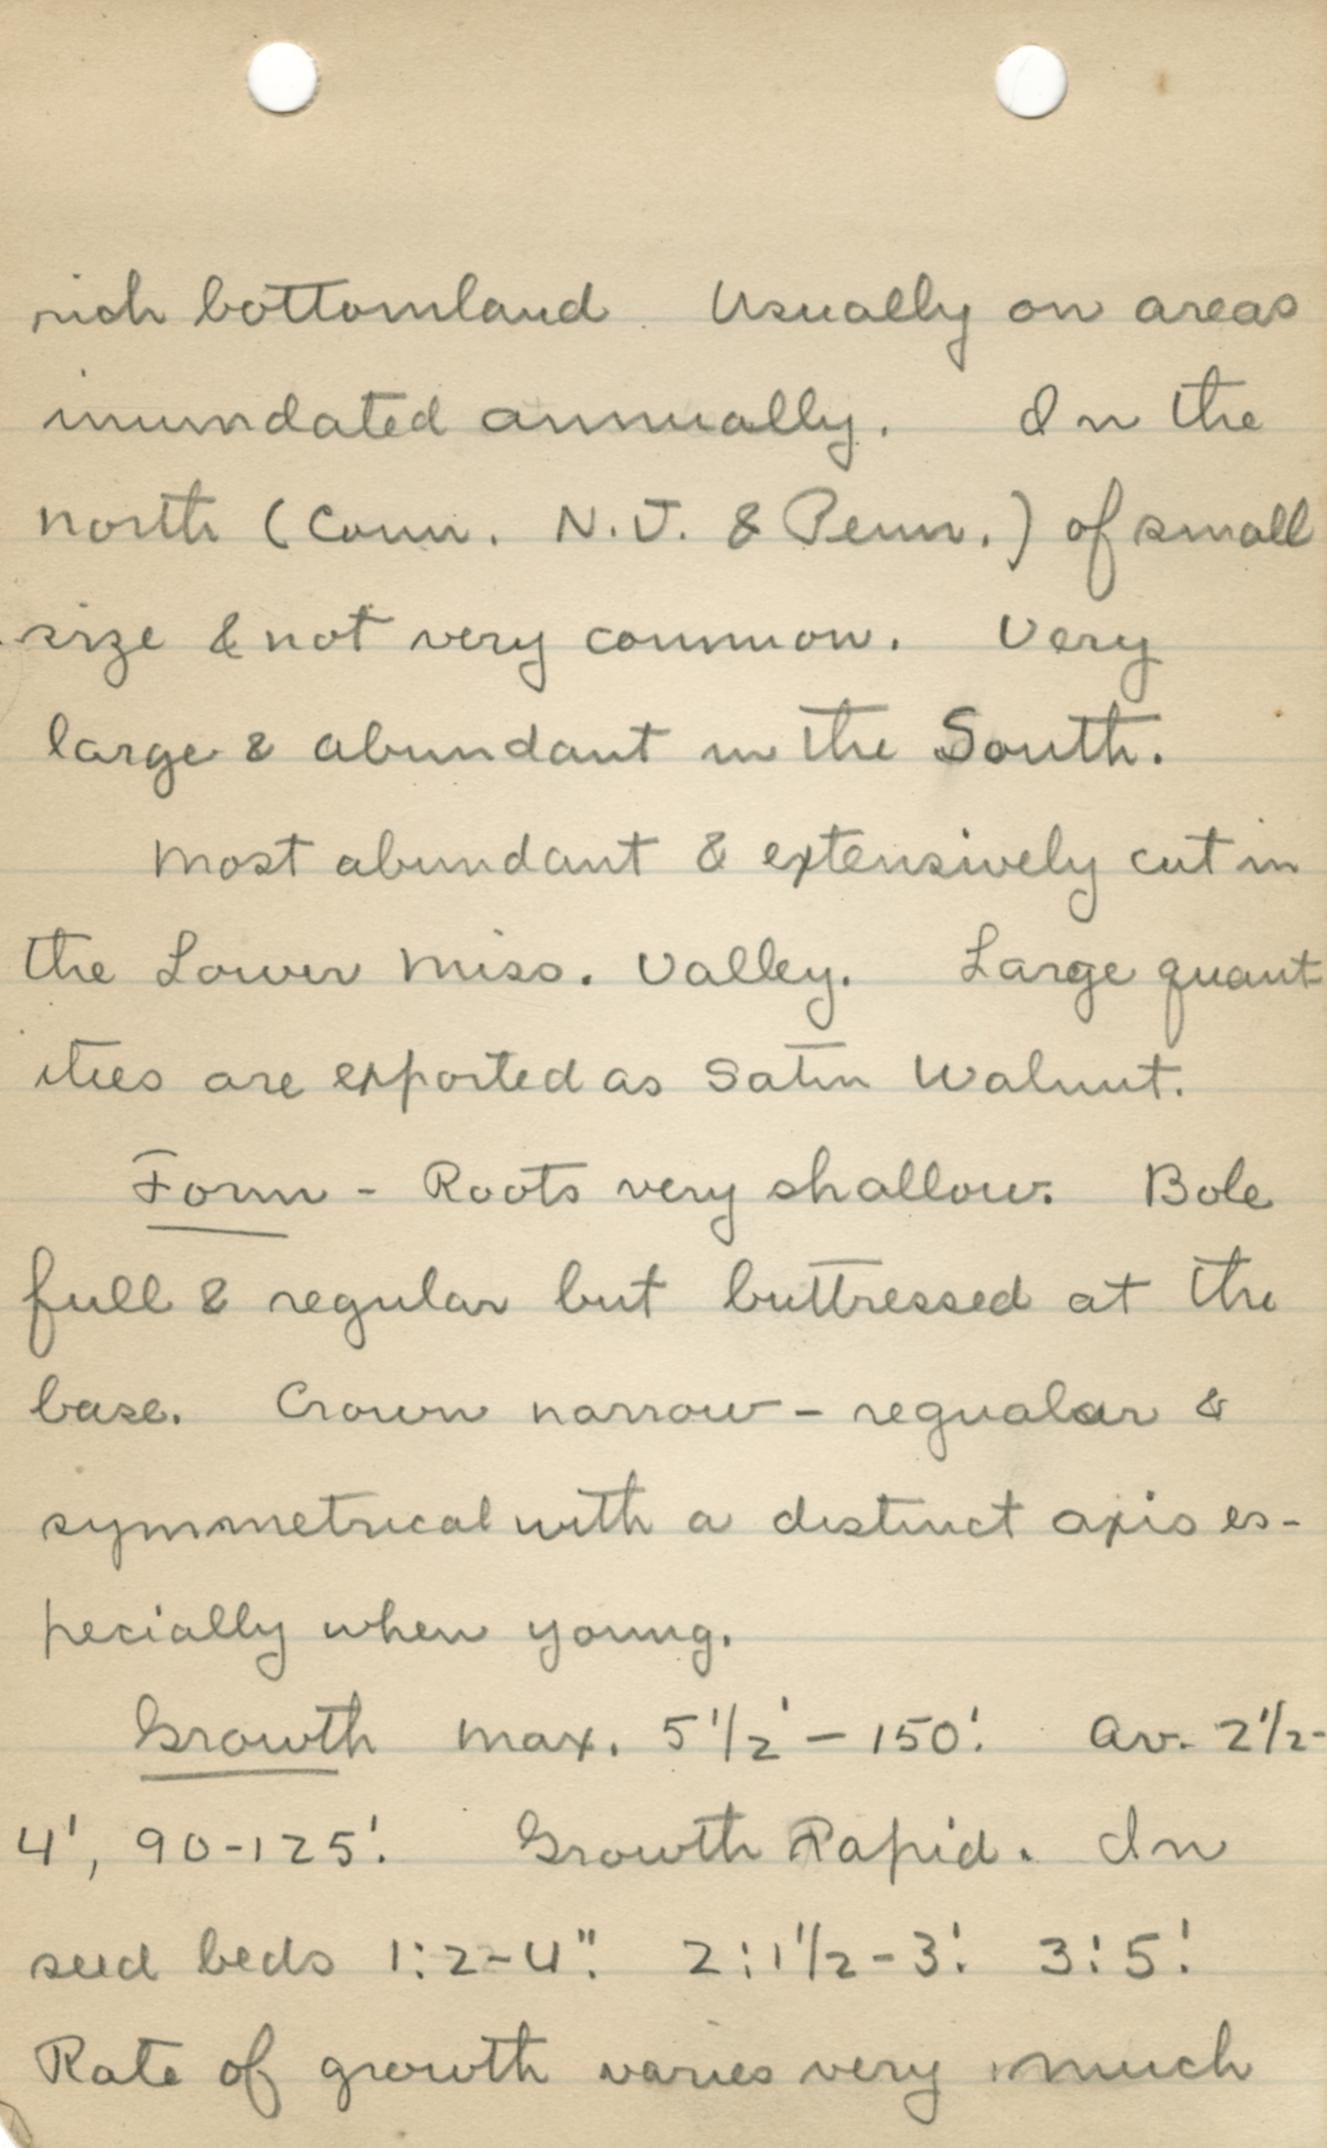 rich bottomland. Usually on areas
inundated annually. In the
north (Conn. N.J. & Penn.) of small
size & not very common. Very
large & abundant in the South.
Most abundant & extensively cut in
the Lower Miss. Valley. Large quant-
ities are exported as Satin Walnut.
Form - Roots very shallow. Bole
full & regular but buttressed at the
base. Crown narrow - regualar &
symmetrical with a distinct axis es-
pecially when young.
Growth Max. 5 1/2' - 150'. Av. 2 1/2-
4', 90-125'. Growth Rapid. In
seed beds 1:2-4". 2:1 1/2-3'. 3:5'.
Rate of growth varies very much